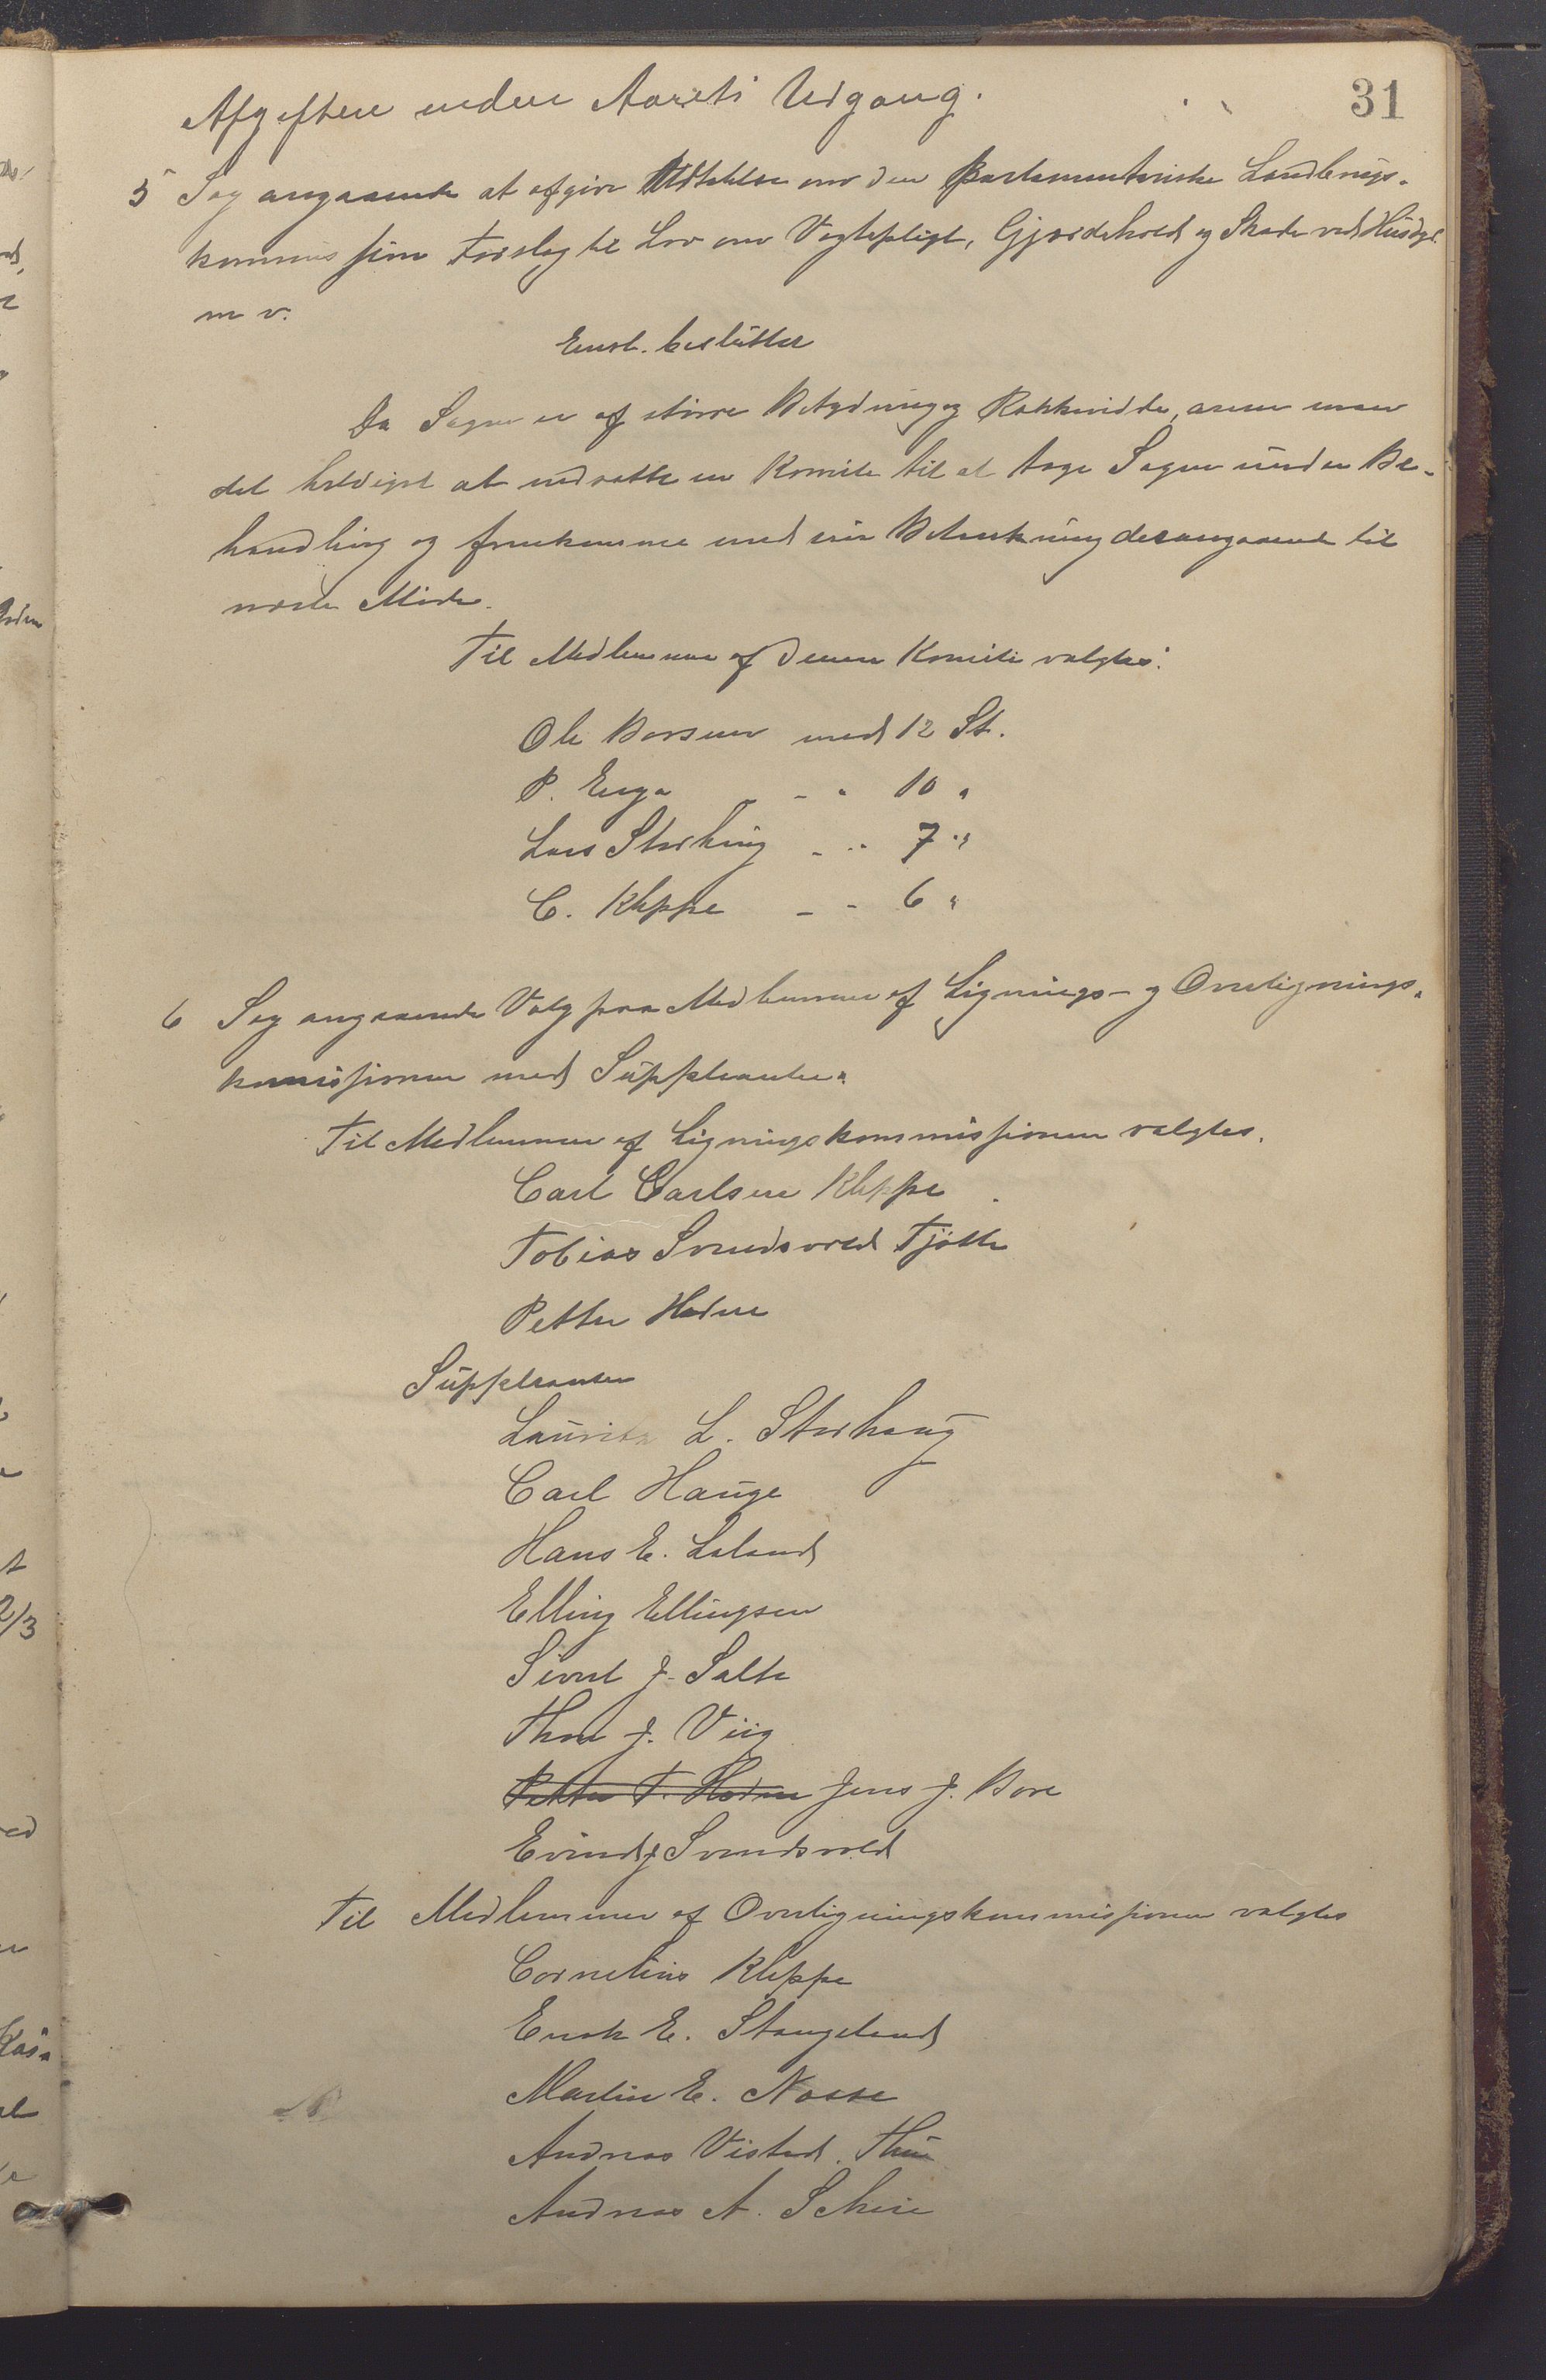 31
Afgiften inden Aarets Udgang.
5 Sag angaaende at afgive Udtalelse om den Parlamentariske Landbrugs-
kommissions Forslag til Lov om Vogtepligt, Gjærdehold og Skade ved Husdyr
m v.
Enst. besluttet
Da Sagen er af større Betydning og Rækkevidde, anser man
det heldigst at nedsætte en Komite til at tage Sagen under Be-
handling og fremkomme med sin Betænkning desangaaende til
næste Møde.
Til Medlemmer af denne Komite valgtes:
Ole Borsen med 12 St.
P. Enga - " 10 "
Lars Storhaug - " 7 "
C. Kleppe - " 6 "
6 Sag angaaende Valg paa Medlemmer af Lignings- og Overlignings-
kommissionen med Suppleanter.
Til Medlemmer af Ligningskommissionen valgtes.
Carl Carlsen Kleppe
Tobias Svendsvold Tjøtte
Petter Hodne
Suppleanter
Laurits L. Storhaug
Carl Hauge
Hans E. Laland
Elling Ellingsen
Sivert J. Salte
Thore J. Viig
Petter T. Hodne Jens J. Bore
Eivind J Svendsvold
Til Medlemmer af Overligningskommissionen valgtes
Cornelius Kleppe
Enok E. Stangeland
Martin E. Nosse
Andreas Visted. Thu
Andreas A. Scheie